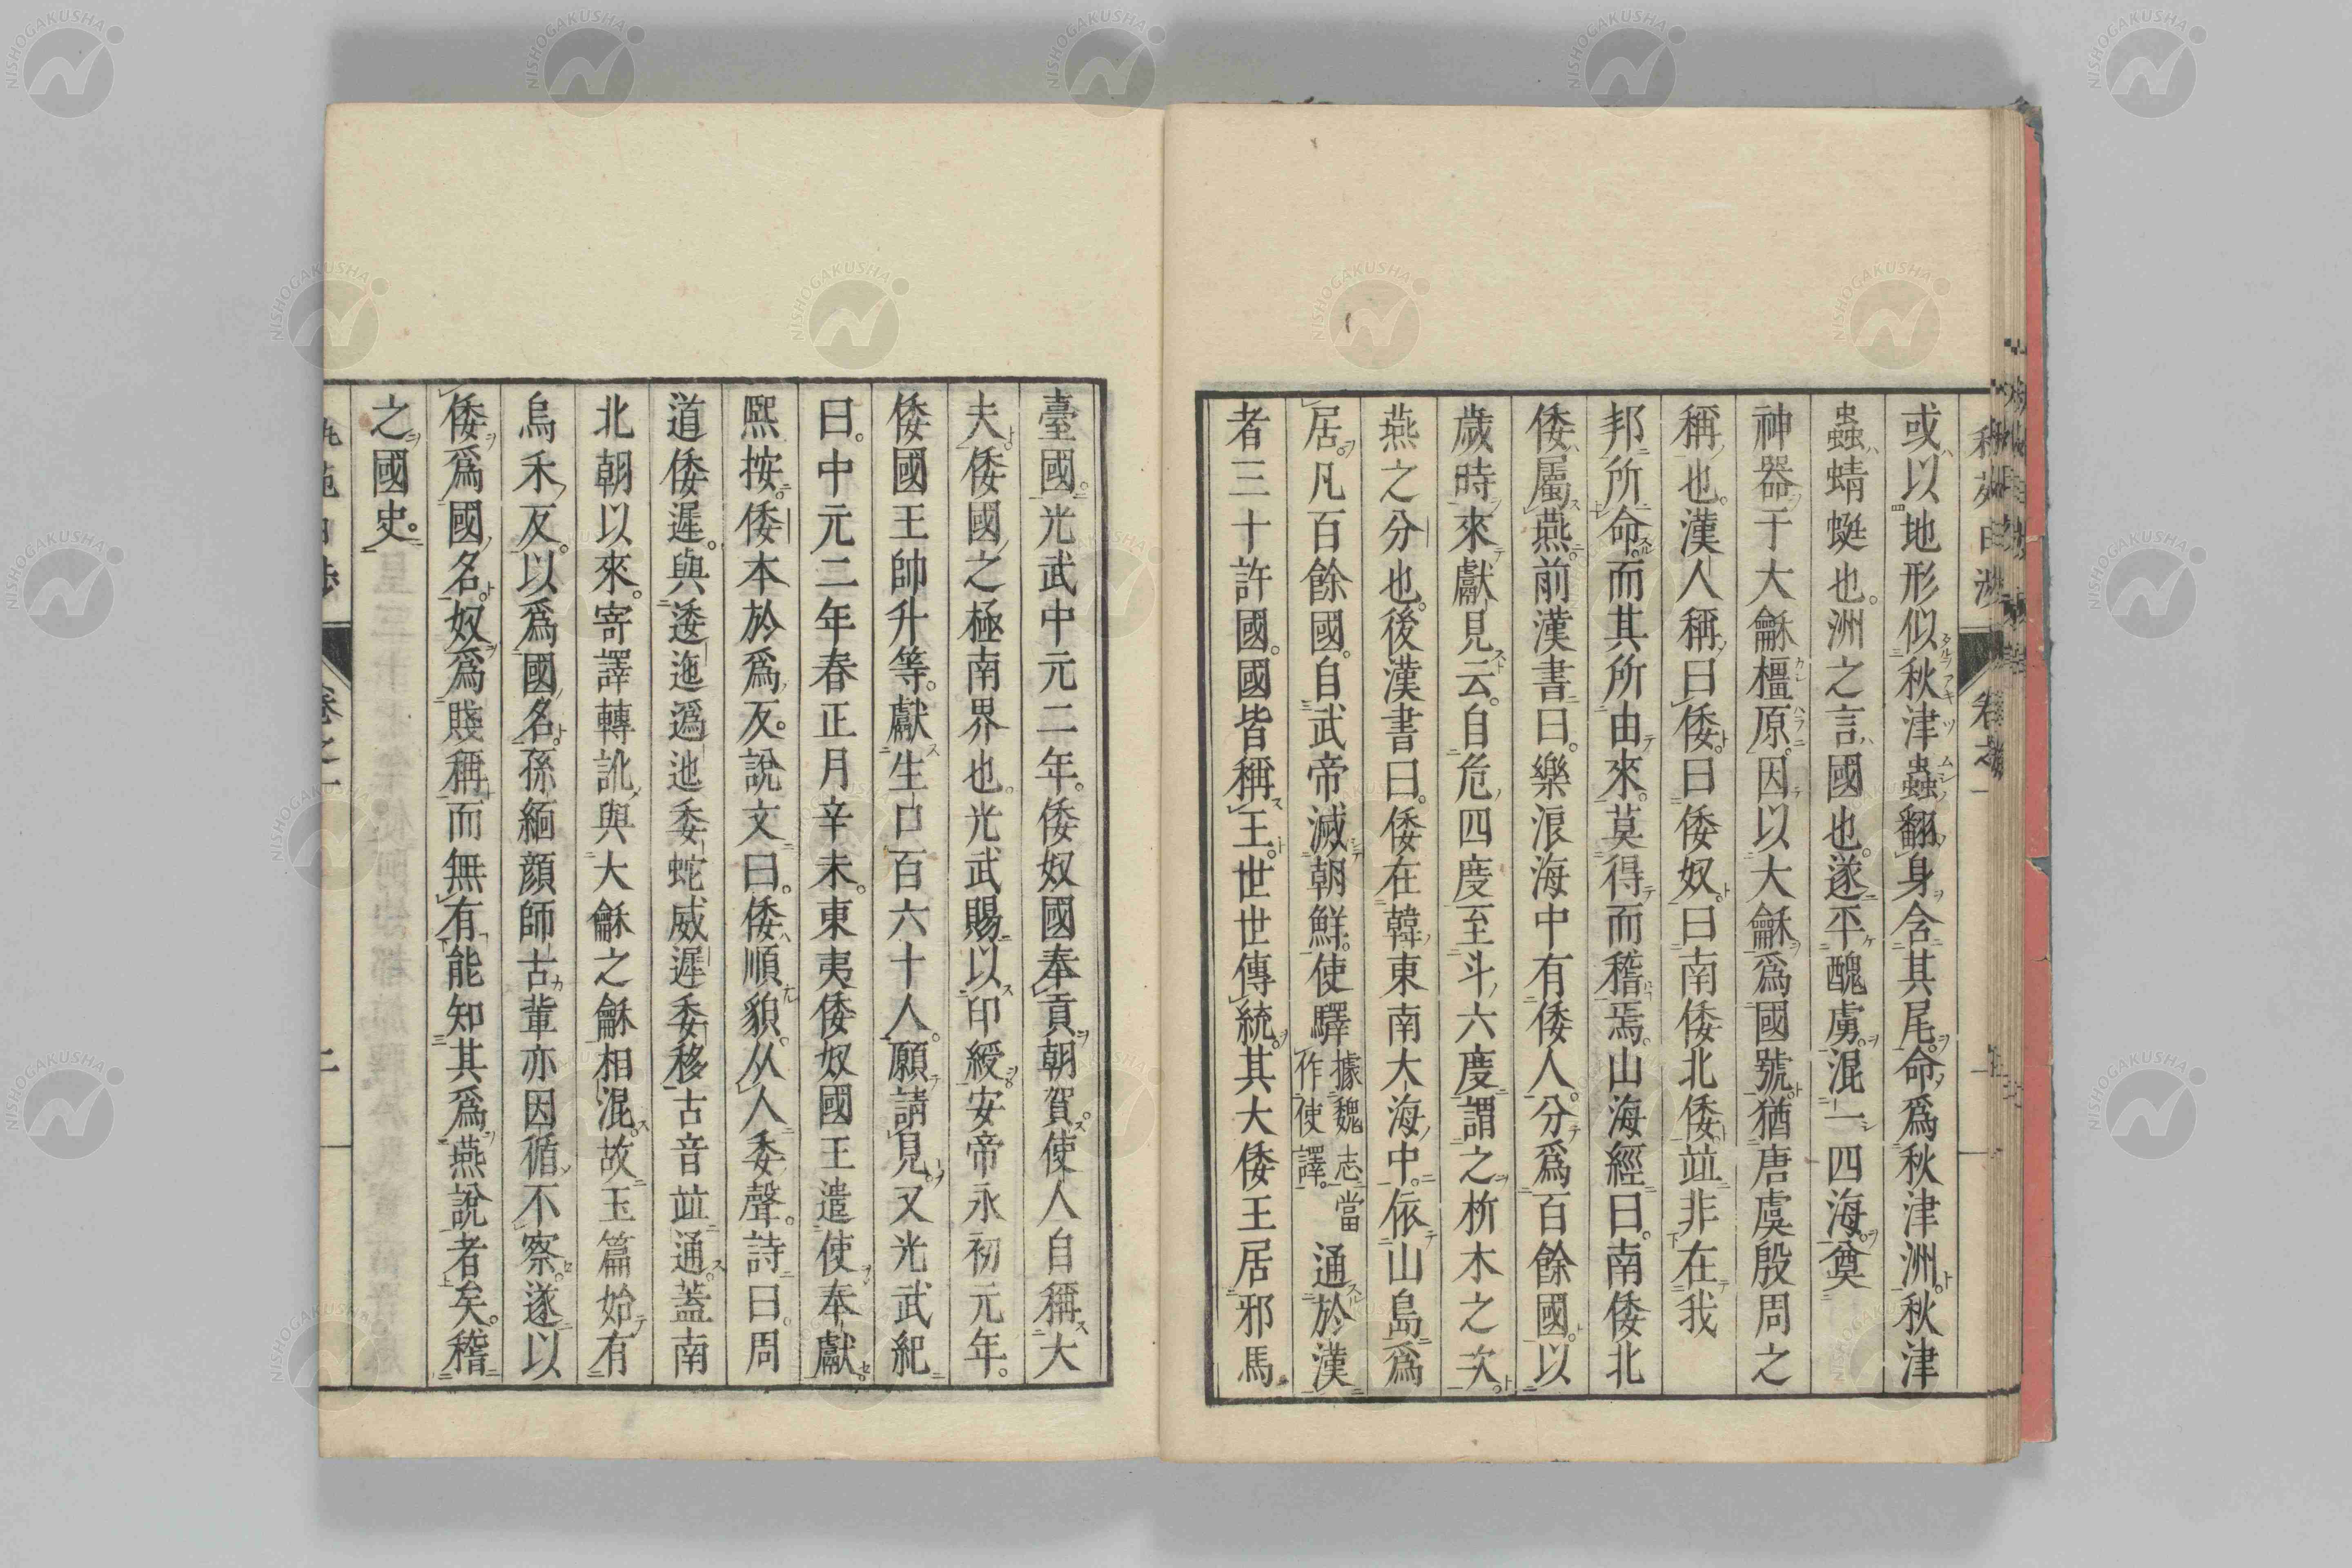 或以地形似秋津蟲翻身含其尾。命爲秋津洲。秋津
蟲蜻蜓也。洲之言國也。遂平醜虜。混一四海。奠
神器于大龢橿原。因以大龢爲國號。猶唐虞殷周之
稱也。漢人稱曰倭。曰倭奴。曰南倭北倭竝非在我
邦所命。而其所由來。莫得而稽焉。山海經曰。南倭北
倭屬燕。前漢書曰。樂浪海中有倭人。分爲百餘國。以
歲時來獻見云。自危四度至斗六度。謂之析木之次。
燕之分也。後漢書曰。倭在韓東南大海中。依山島爲
居。凡百餘國。自武帝滅朝鮮。使驛據魏志當作使譯。通於漢
者三十許國。國皆稱王。世世傳統。其大倭王居邪馬
臺國。光武中元二年。倭奴國奉貢朝賀。使人自稱大
夫。倭國之極南界也。光武賜以印綬。安帝永初元年。
倭國王帥升等。獻生口百六十人。願請見。又光武紀
曰。中元二年春正月辛未。東夷倭奴國王遣使奉獻。
熙按。倭本於爲反。說文曰。倭順貌。从人委聲。詩曰。周
道倭遲。與逶迤潙池委蛇威遲委移古音竝通。蓋南
北朝以來。寄譯轉訛。與大龢之龢相混。故玉篇始有
烏禾反。以爲國名。孫緬顔師古輩亦因循不察。遂以
倭爲國名。奴爲賤稱。而無有能知其爲燕說者矣。稽
之國史。
NISHOGAKUSHA